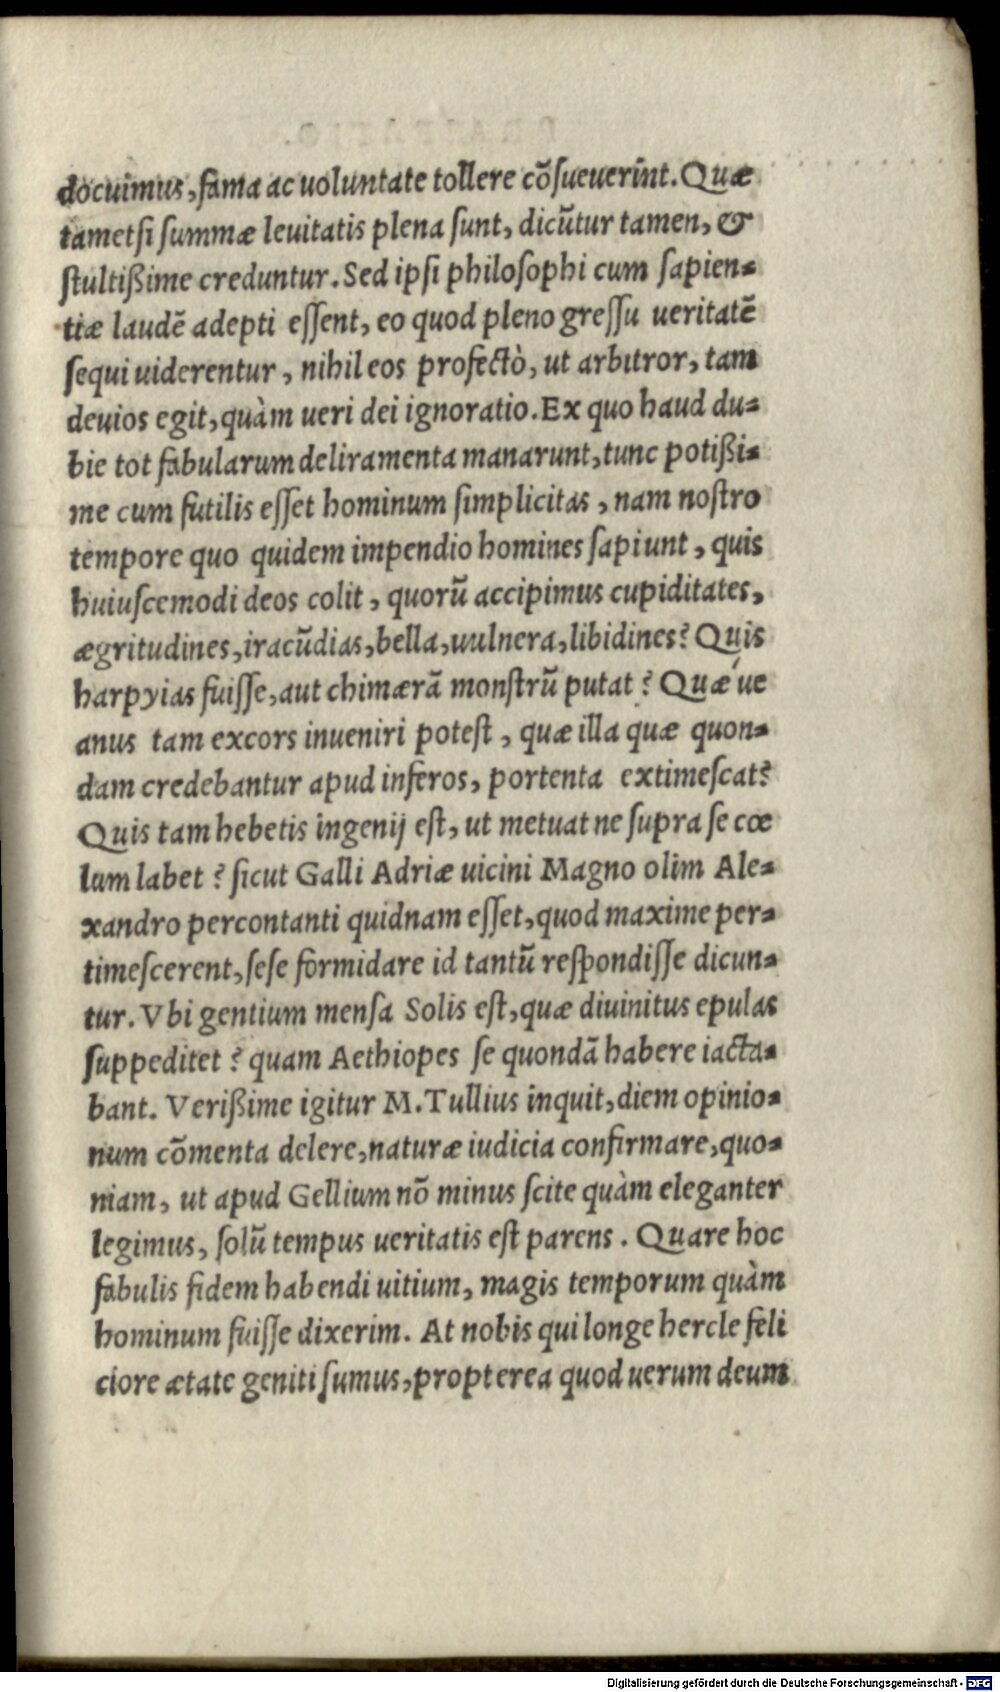 docuimus, fama ac uoluntate tollere cõsueuerint. Quæ
tametsi summæ leuitatis plena sunt, dicũtur tamen, &
stultißime creduntur. Sed ipsi philosophi cum sapien-
tiæ laudẽ adepti essent, eo quod pleno gressu ueritatẽ
sequi uiderentur, nihil eos profectò, ut arbitror, tam
deuios egit, quàm ueri dei ignoratio. Ex quo haud du-
bie tot fabularum deliramenta manarunt, tunc potißi-
me cum futilis esset hominum simplicitas, nam nostro
tempore quo quidem impendio homines sapiunt, quis
huiuscemodi deos colit, quorũ accipimus cupiditates,
ægritudines, iracũdias, bella, uulnera, libidines? Quis
harpyias fuisse, aut chimærã monstrũ putat? Quæ´ue
anus tam excors inueniri potest, quæ illa quæ quon-
dam credebantur apud inferos, portenta extimescat?
Quis tam hebetis ingenij est, ut metuat ne supra se cœ
lum labet? sicut Galli Adriæ uicini Magno olim Ale-
xandro percontanti quidnam esset, quod maxime per-
timescerent, sese formidare id tantũ respondisse dicun-
tur. Vbi gentium mensa Solis est, quæ diuinitus epulas
suppeditet? quam Aethiopes se quondã habere iacta-
bant. Verißime igitur M. Tullius inquit, diem opinio-
num cõmenta delere, naturæ iudicia confirmare, quo-
niam, ut apud Gellium nõ minus scite quàm eleganter
legimus, solũ tempus ueritatis est parens. Quare hoc
fabulis fidem habendi uitium, magis temporum quàm
hominum fuisse dixerim. At nobis qui longe hercle feli
ciore ætate geniti sumus, propterea quod uerum deum
Digitalisierung gefördert durch die Deutsche Forschungsgemeinschaft - DFG